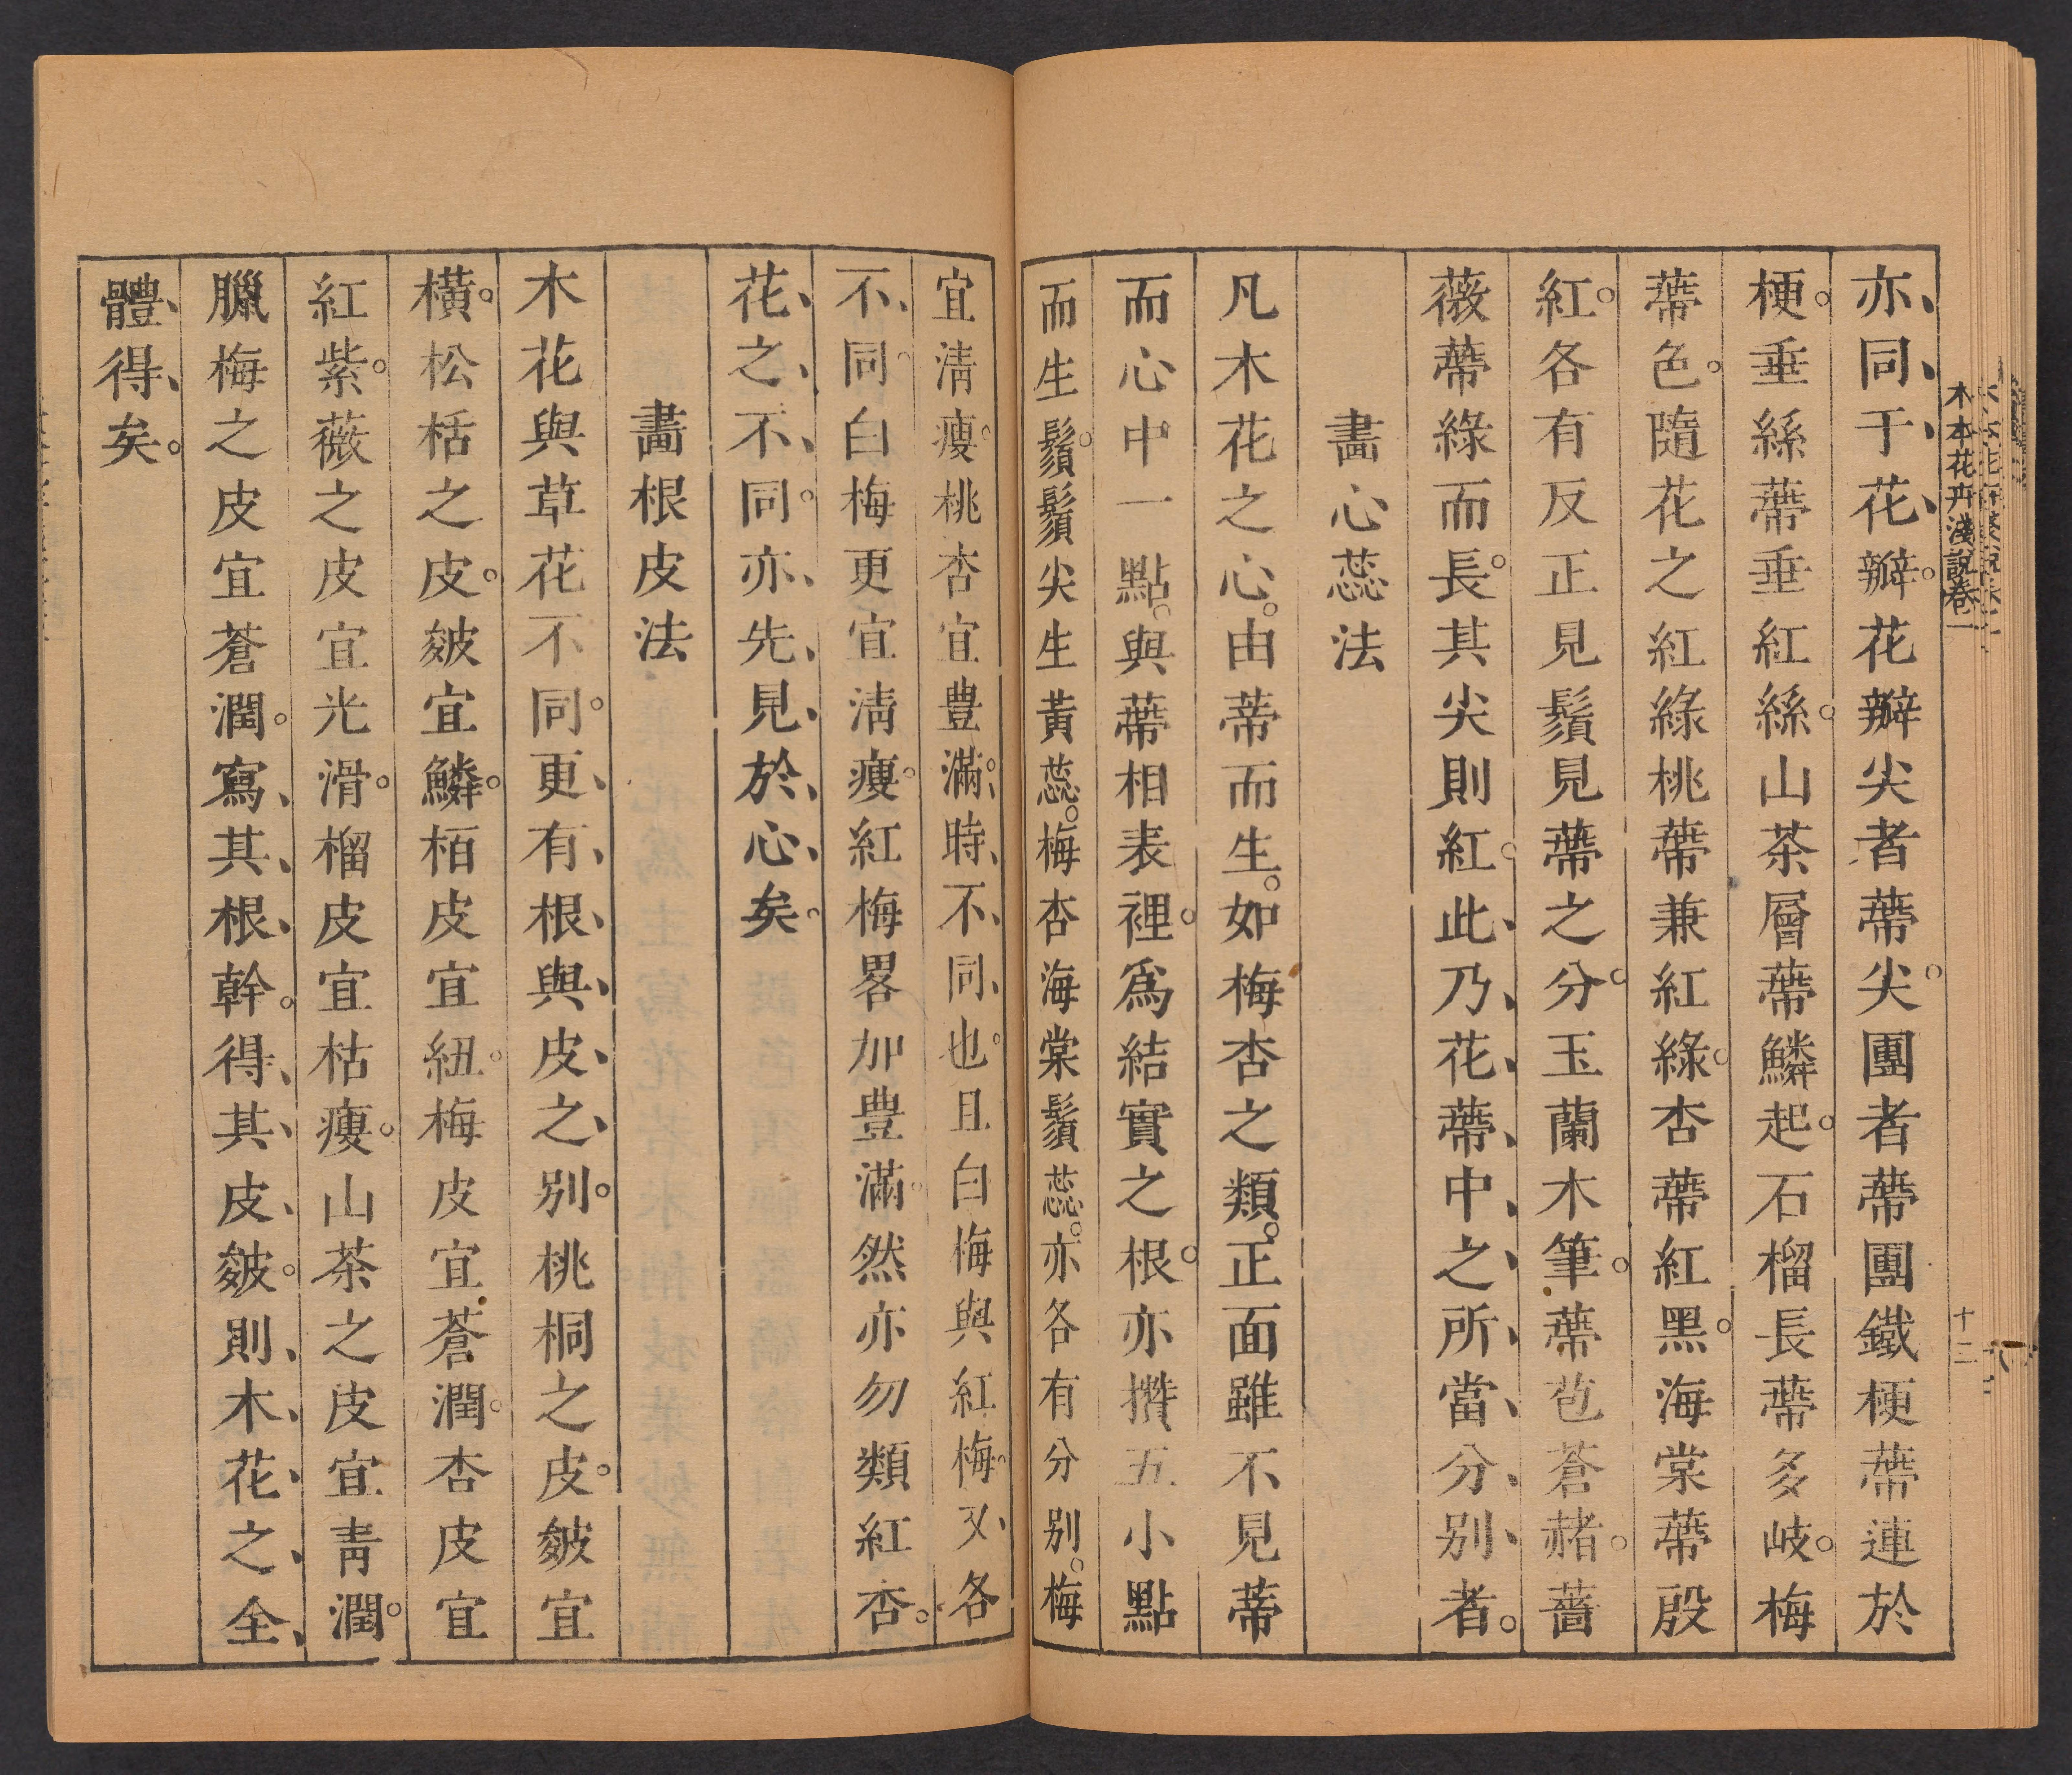 木本花卉淺說卷一
十二
亦同于花瓣花瓣尖者蔕尖團者蔕團鐵梗蔕連於
梗垂絲蔕垂紅絲山茶層蔕鱗起石榴長蔕多岐梅
蔕色隨花之紅綠桃蔕兼紅綠杏蔕紅黑海棠蔕殷
紅各有反正見鬚見蔕之分玉蘭木筆蔕苞蒼赭薔
薇蔕綠而長其尖則紅此乃花蔕中之所當分別者
畵心蕊法
凡木花之心由蒂而生如梅杏之類正面雖不見蒂
而心中一點與蔕相表裡爲結實之根亦攢五小點
而生鬚鬚尖生黃蕊梅杏海棠鬚蕊亦各有分別梅
宜淸瘦桃杏宜豊滿時不同也且白梅與紅梅又各
不同白梅更宜淸瘦紅梅畧加豊滿然亦勿類紅杏
花之不同亦先見於心矣
畵根皮法
木花與草花不同更有根與皮之別桃桐之皮皴宜
橫松栝之皮皴宜鱗栢皮宜紐梅皮宜蒼潤杏皮宜
紅紫薇之皮宜光滑榴皮宜枯瘦山茶之皮宜靑潤
臘梅之皮宜蒼潤寫其根幹得其皮皴則木花之全
體得矣